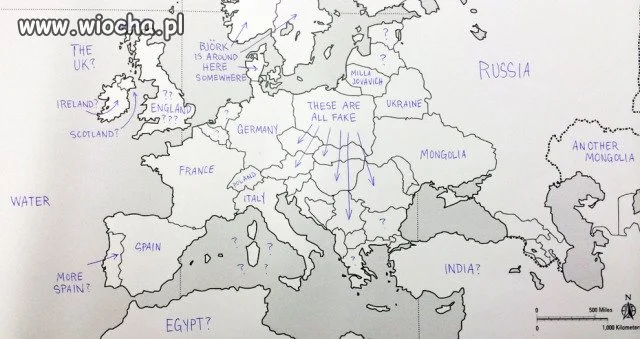 www.wiocha.pl
THE
UK?
BJÖRK
IS AROUND
HERE
SOMEWHERE
?
?
RUSSIA
MILLA
JOVAVICH
IRELAND?
??
ENGLAND
???
SCOTLAND?
?
?
GERMANY
THESE ARE
ALL FAKE
UKRAINE
FRANCE
MONGOLIA
ANOTHER
MONGOLIA
MILAND
ITALY
WATER
SPAIN
MORE
SPAIN?
?
?
?
?
?
?
INDIA?
EGYPT?
N
0 500 Miles
0 1,000 Kilometers